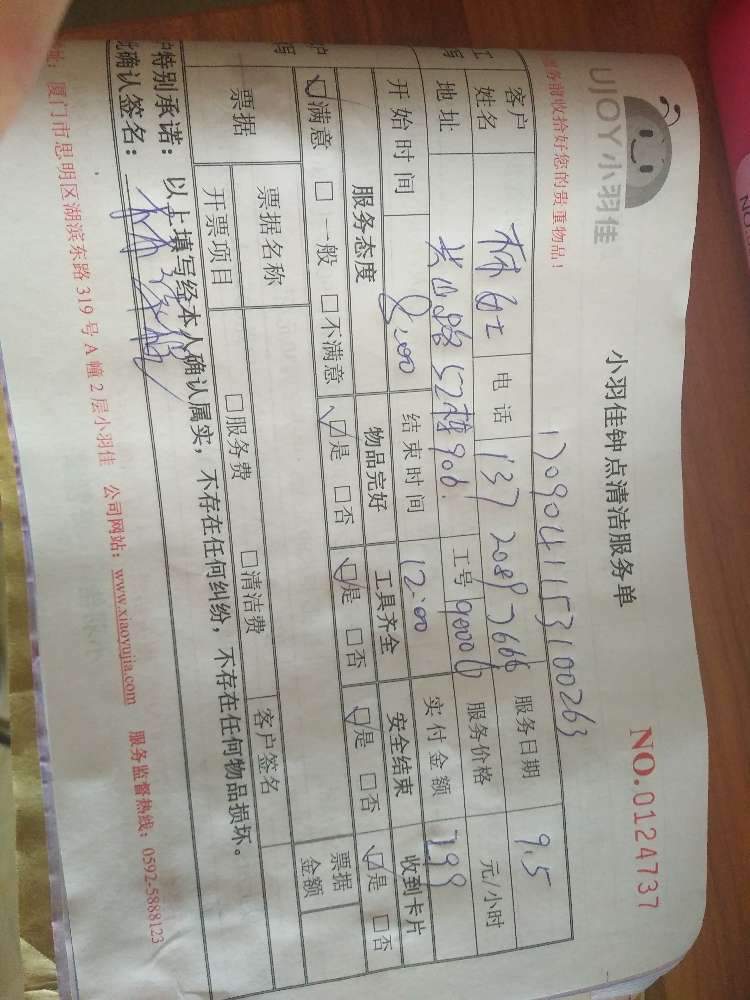 UJOY小羽佳
小羽佳钟点清洁服务单
NO.0124737
务前收拾好您的贵重物品！
1709041153100263
客户姓名 林女士 电话 137 2089 7666 服务日期 9.5
地址 52栋906 工号 90006 服务价格 元/小时
开始时间 8:00 结束时间 12:00 实付金额 199
服务态度 物品完好 工具齐全 安全结束 收到卡片
☑满意 □一般 □不满意 ☑是 □否 ☑是 □否 ☑是 □否 ☑是 □否
票据 票据名称 □服务费 □清洁费 票据金额
开票项目 客户签名
特别承诺：以上填写经本人确认属实，不存在任何纠纷，不存在任何物品损坏。
确认签名：
址：厦门市思明区湖滨东路319号A幢2层小羽佳 公司网站：www.xiaoyujia.com 服务监督热线：0592-5888123